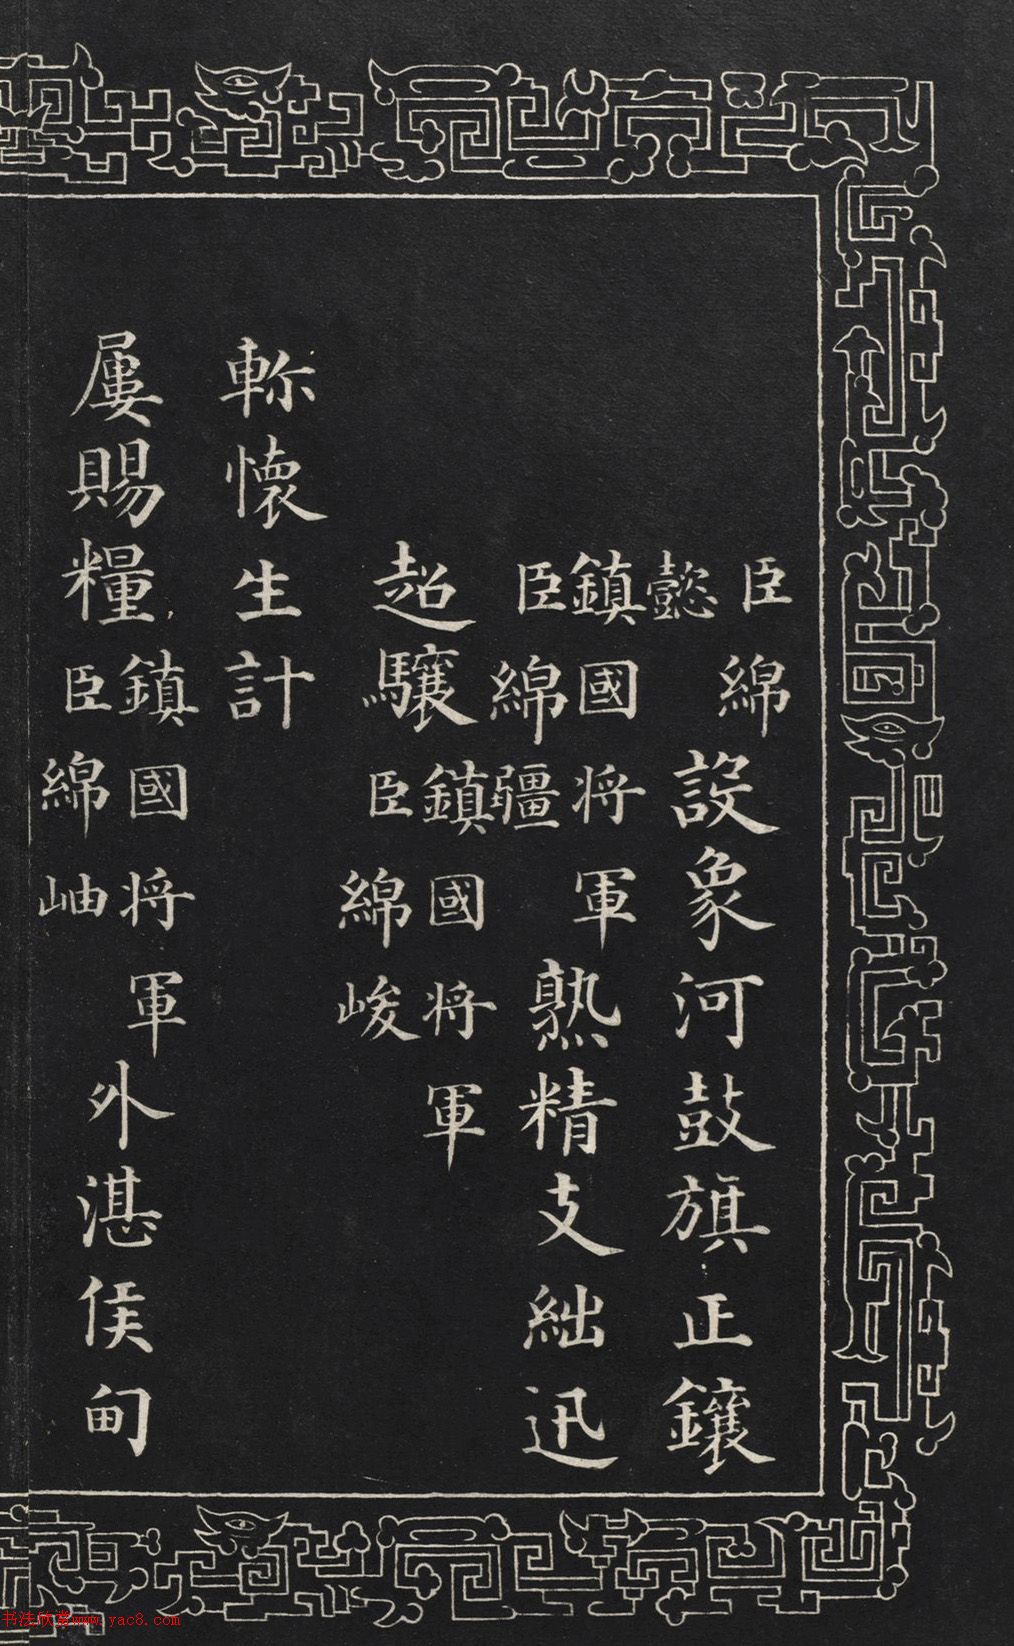 臣綿
懿
設象河鼓旗正鑲
鎮國将軍
臣綿疆
熟精支絀迅
超驤
鎮國将軍
臣綿峻
軫懷生計
屢賜糧
鎮國将軍
臣綿岫
外湛侯甸
书法欣赏www.yac8.com